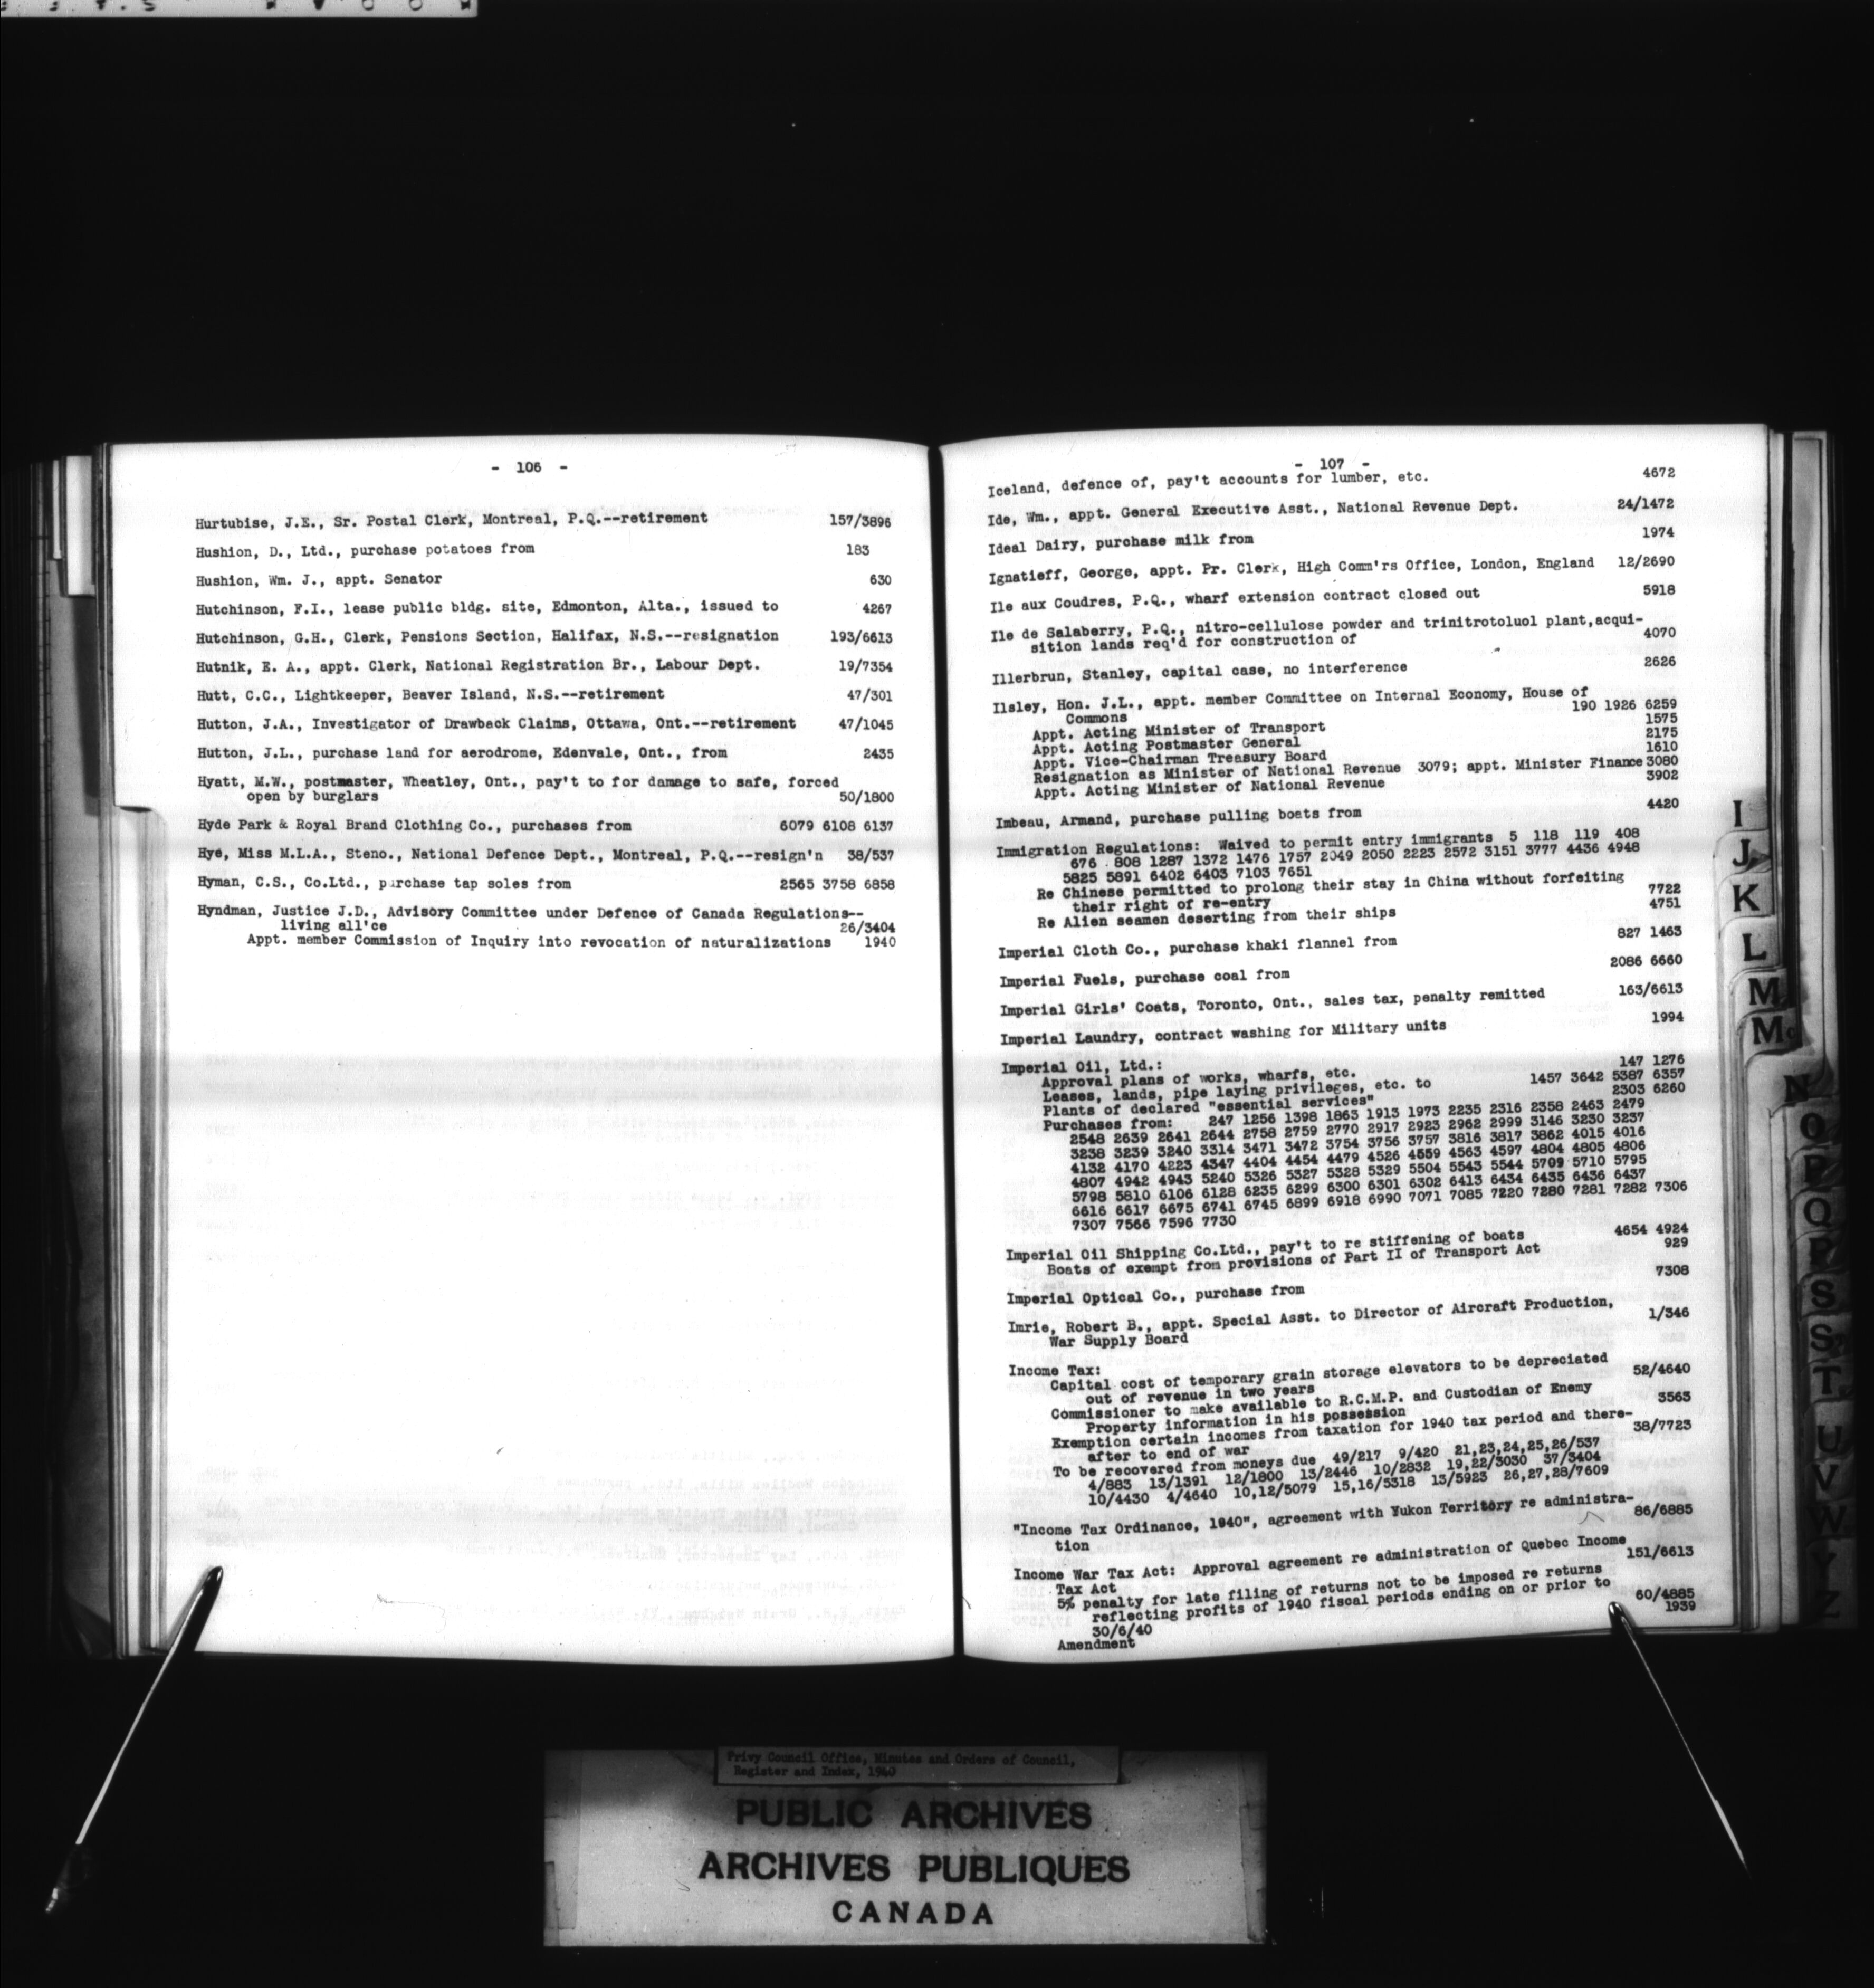 - 106 -
Hurtubise, J.E., Sr. Postal Clerk, Montreal, P.Q.--retirement 157/3896
Hushion, D., Ltd., purchase potatoes from 183
Hushion, Wm. J., appt. Senator 630
Hutchinson, F.I., lease public bldg. site, Edmonton, Alta., issued to 4267
Hutchinson, G.H., Clerk, Pensions Section, Halifax, N.S.--resignation 193/6613
Hutnik, E. A., appt. Clerk, National Registration Br., Labour Dept. 19/7354
Hutt, C.C., Lightkeeper, Beaver Island, N.S.--retirement 47/301
Hutton, J.A., Investigator of Drawback Claims, Ottawa, Ont.--retirement 47/1045
Hutton, J.L., purchase land for aerodrome, Edenvale, Ont., from 2435
Hyatt, M.W., postmaster, Wheatley, Ont., pay't to for damage to safe, forced
open by burglars 50/1800
Hyde Park & Royal Brand Clothing Co., purchases from 6079 6108 6137
Hye, Miss M.L.A., Steno., National Defence Dept., Montreal, P.Q.--resign'n 38/537
Hyman, C.S., Co.Ltd., purchase tap soles from 2565 3758 6858
Hyndman, Justice J.D., Advisory Committee under Defence of Canada Regulations--
living all'ce 26/3404
Appt. member Commission of Inquiry into revocation of naturalizations 1940
- 107 -
Iceland, defence of, pay't accounts for lumber, etc. 4672
Ide, Wm., appt. General Executive Asst., National Revenue Dept. 24/1472
Ideal Dairy, purchase milk from 1974
Ignatieff, George, appt. Pr. Clerk, High Comm'rs Office, London, England 12/2690
Ile aux Coudres, P.Q., wharf extension contract closed out 5918
Ile de Salaberry, P.Q., nitro-cellulose powder and trinitrotoluol plant,acqui-
sition lands req'd for construction of 4070
Illerbrun, Stanley, capital case, no interference 2626
Ilsley, Hon. J.L., appt. member Committee on Internal Economy, House of
Commons 190 1926 6259
Appt. Acting Minister of Transport 1575
Appt. Acting Postmaster General 2175
Appt. Vice-Chairman Treasury Board 1610
Resignation as Minister of National Revenue 3079; appt. Minister Finance 3080
Appt. Acting Minister of National Revenue 3902
Imbeau, Armand, purchase pulling boats from 4420
Immigration Regulations: Waived to permit entry immigrants 5 118 119 408
676 808 1287 1372 1476 1757 2049 2050 2223 2572 3151 3777 4436 4948
5825 5891 6402 6403 7103 7651
Re Chinese permitted to prolong their stay in China without forfeiting
their right of re-entry 7722
Re Alien seamen deserting from their ships 4751
Imperial Cloth Co., purchase khaki flannel from 827 1463
Imperial Fuels, purchase coal from 2086 6660
Imperial Girls' Coats, Toronto, Ont., sales tax, penalty remitted 163/6613
Imperial Laundry, contract washing for Military units 1994
Imperial Oil, Ltd.:
Approval plans of works, wharfs, etc. 147 1276
Leases, lands, pipe laying privileges, etc. to 1457 3642 5387 6357
Plants of declared "essential services" 2303 6260
Purchases from: 247 1256 1398 1863 1913 1973 2235 2316 2358 2463 2479
2548 2639 2641 2644 2758 2759 2770 2917 2923 2962 2999 3146 3230 3237
3238 3239 3240 3314 3471 3472 3754 3756 3757 3816 3817 3862 4015 4016
4132 4170 4223 4347 4404 4454 4479 4526 4559 4563 4597 4804 4805 4806
4807 4942 4943 5240 5326 5327 5328 5329 5504 5543 5544 5709 5710 5795
5798 5810 6106 6128 6235 6299 6300 6301 6302 6413 6434 6435 6436 6437
6616 6617 6675 6741 6745 6899 6918 6990 7071 7085 7220 7280 7281 7282 7306
7307 7566 7596 7730
Imperial Oil Shipping Co.Ltd., pay't to re stiffening of boats 4654 4924
Boats of exempt from provisions of Part II of Transport Act 929
Imperial Optical Co., purchase from 7308
Imrie, Robert B., appt. Special Asst. to Director of Aircraft Production,
War Supply Board 1/346
Income Tax:
Capital cost of temporary grain storage elevators to be depreciated
out of revenue in two years 52/4640
Commissioner to make available to R.C.M.P. and Custodian of Enemy
Property information in his possession 3563
Exemption certain incomes from taxation for 1940 tax period and there-
after to end of war 38/7723
To be recovered from moneys due 49/217 9/420 21,23,24,25,26/537
4/883 13/1391 12/1800 13/2446 10/2832 19,22/3030 37/3404
10/4430 4/4640 10,12/5079 15,16/5318 13/5923 26,27,28/7609
"Income Tax Ordinance, 1940", agreement with Yukon Territory re administra-
tion 86/6885
Income War Tax Act: Approval agreement re administration of Quebec Income
Tax Act 151/6613
5% penalty for late filing of returns not to be imposed re returns
reflecting profits of 1940 fiscal periods ending on or prior to
30/6/40 60/4885
Amendment 1939
I
J
K
L
M
Mc
N
O
P
Q
R
S
S
T
U
V
W
Y
Z
Privy Council Office, Minutes and Orders of Council,
Register and Index, 1940
PUBLIC ARCHIVES
ARCHIVES PUBLIQUES
CANADA